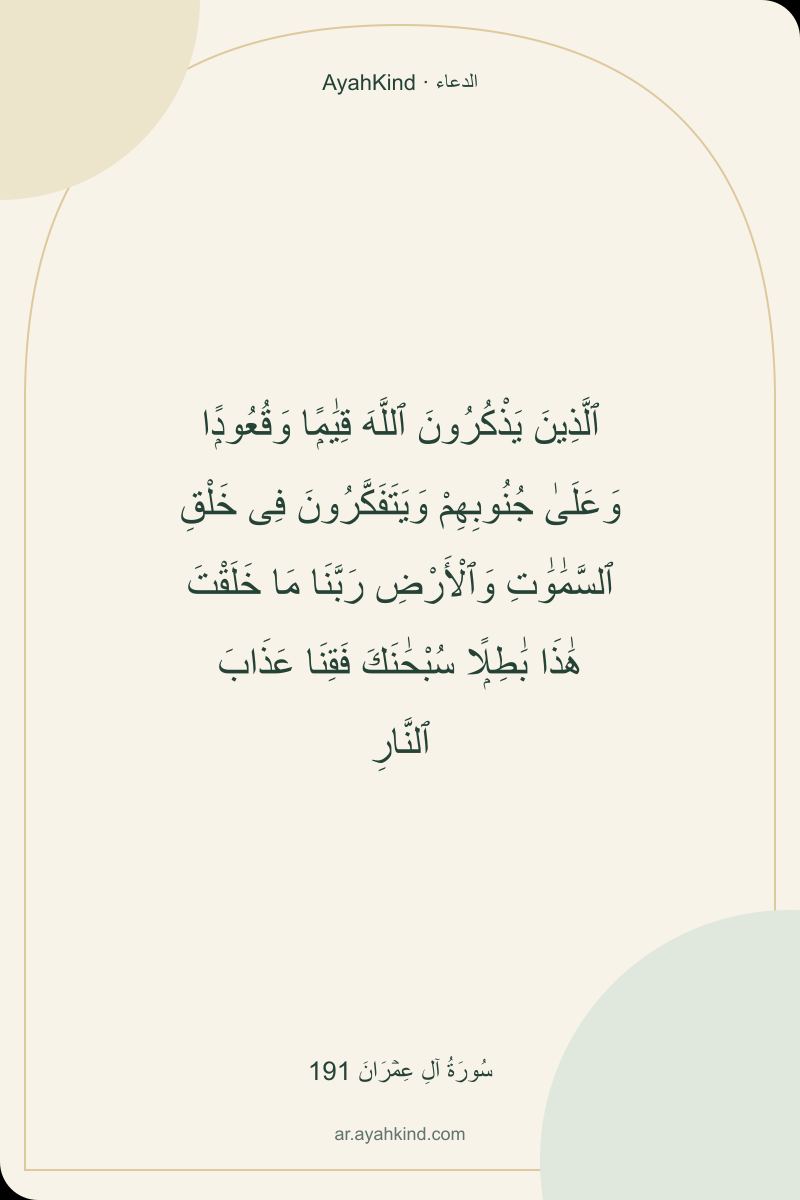 AyahKind · الدعاء
ٱلَّذِينَ يَذْكُرُونَ ٱللَّهَ قِيَٰمًۭا وَقُعُودًۭا
وَعَلَىٰ جُنُوبِهِمْ وَيَتَفَكَّرُونَ فِى خَلْقِ
ٱلسَّمَٰوَٰتِ وَٱلْأَرْضِ رَبَّنَا مَا خَلَقْتَ
هَٰذَا بَٰطِلًۭا سُبْحَٰنَكَ فَقِنَا عَذَابَ
ٱلنَّارِ
سُورَةُ آلِ عِمۡرَانَ 191
ar.ayahkind.com